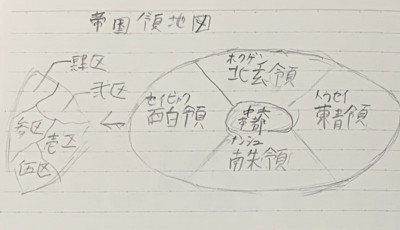 帝国領地図
肆区
弐区
参区
壱区
伍区
ホクゲン
北玄領
セイビャク
西白領
帝都
トウセイ
東青領
ナンシュ
南朱領